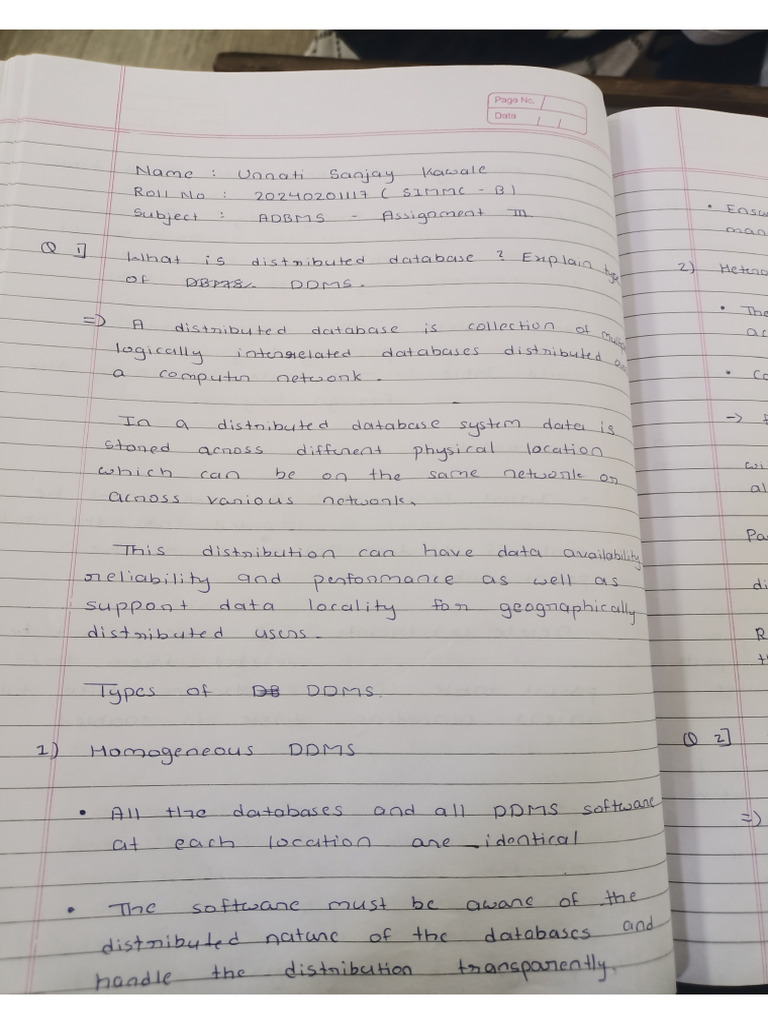 Page No.
Date / /
Name : Unnati Sanjay Kawale
Roll No : 20240201117 ( SIMMC - B )
Subject : ADBMS - Assignment III
Q 1] What is distributed database ? Explain type
of DDMS.
=> A distributed database is collection of multiple
logically interrelated databases distributed over
a computer network .
In a distributed database system data is
stored across different physical location
which can be on the same network or
across various network.
This distribution can have data availability
reliability and performance as well as
support data locality for geographically
distributed users .
Types of DB DDMS.
1) Homogeneous DDMS
• All the databases and all DDMS software
at each location are identical
• The software must be aware of the
distributed nature of the databases and
handle the distribution transparently.
•
2)
• The
•
->
Q 2]
=>